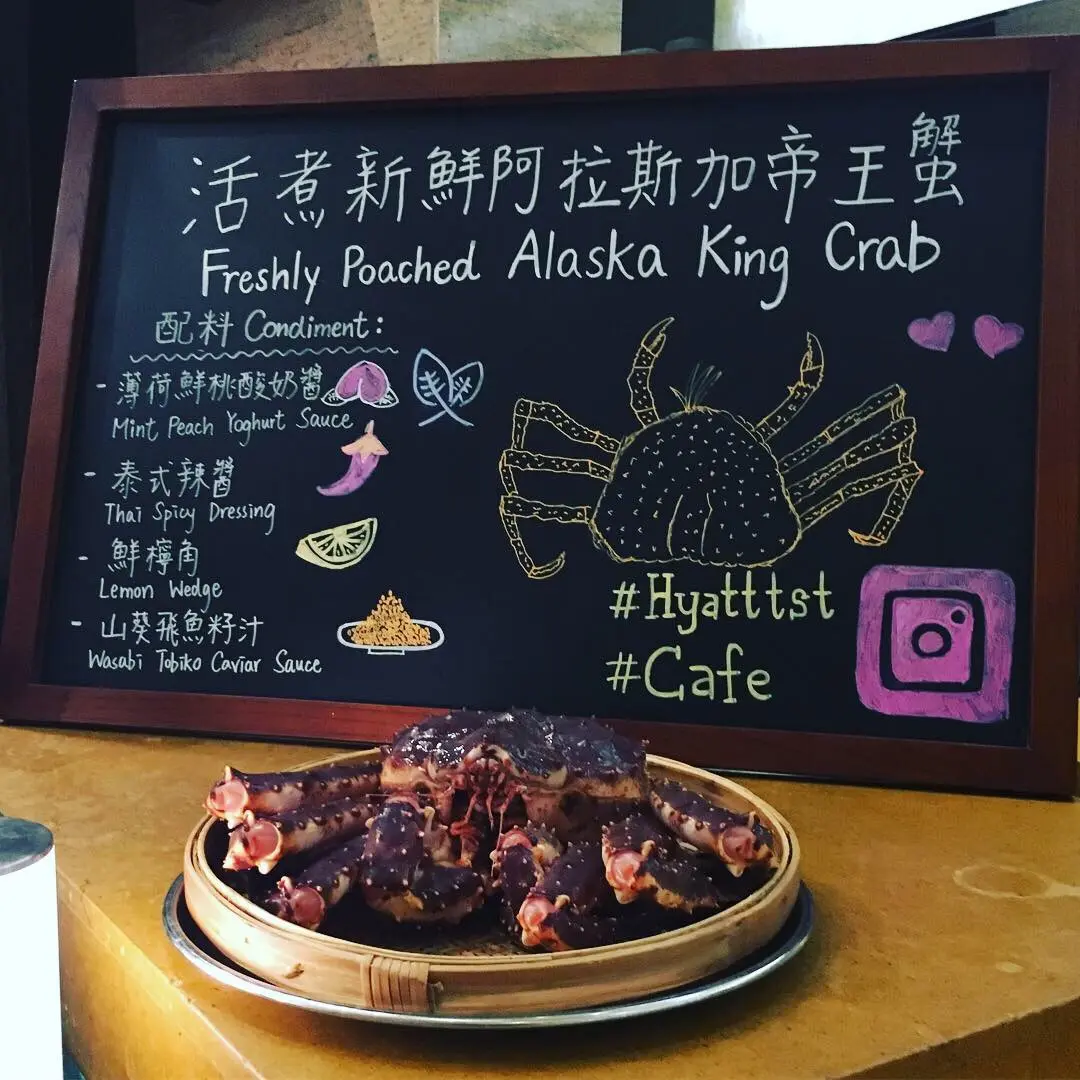 活煮新鮮阿拉斯加帝王蟹
Freshly Poached Alaska King Crab
配料 Condiment:
- 薄荷鮮桃酸奶醬
Mint Peach Yoghurt Sauce
- 泰式辣醬
Thai Spicy Dressing
- 鮮檸角
Lemon Wedge
- 山葵飛魚籽汁
Wasabi Tobiko Caviar Sauce
#Hyatttst
#Cafe